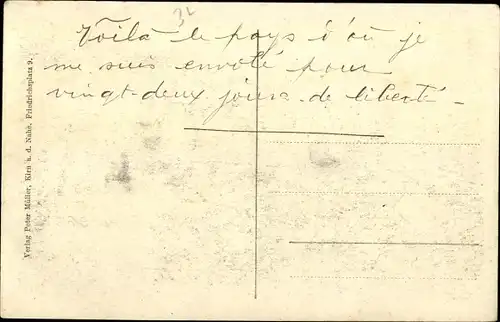 32
Voilà le pays d'où je
me suis envolé pour
vingt-deux jours de liberté -
Verlag Peter Müller, Kirn a. d. Nahe, Friedrichsplatz 9.